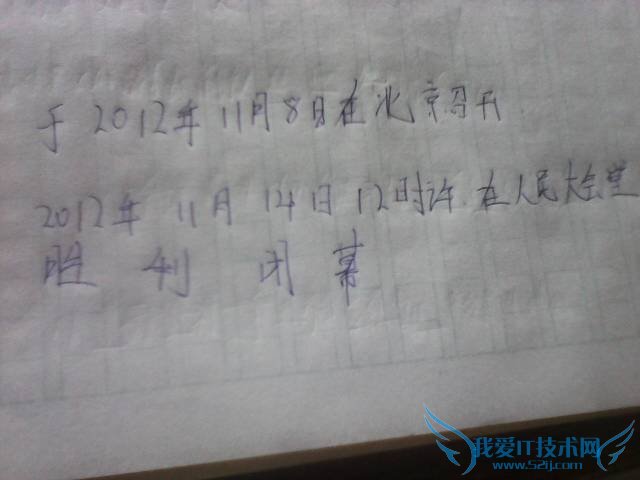 于2012年11月8日在北京召开
2012年11月14日12时许.在人民大会堂
胜利闭幕
我爱IT技术网
www.52ij.com